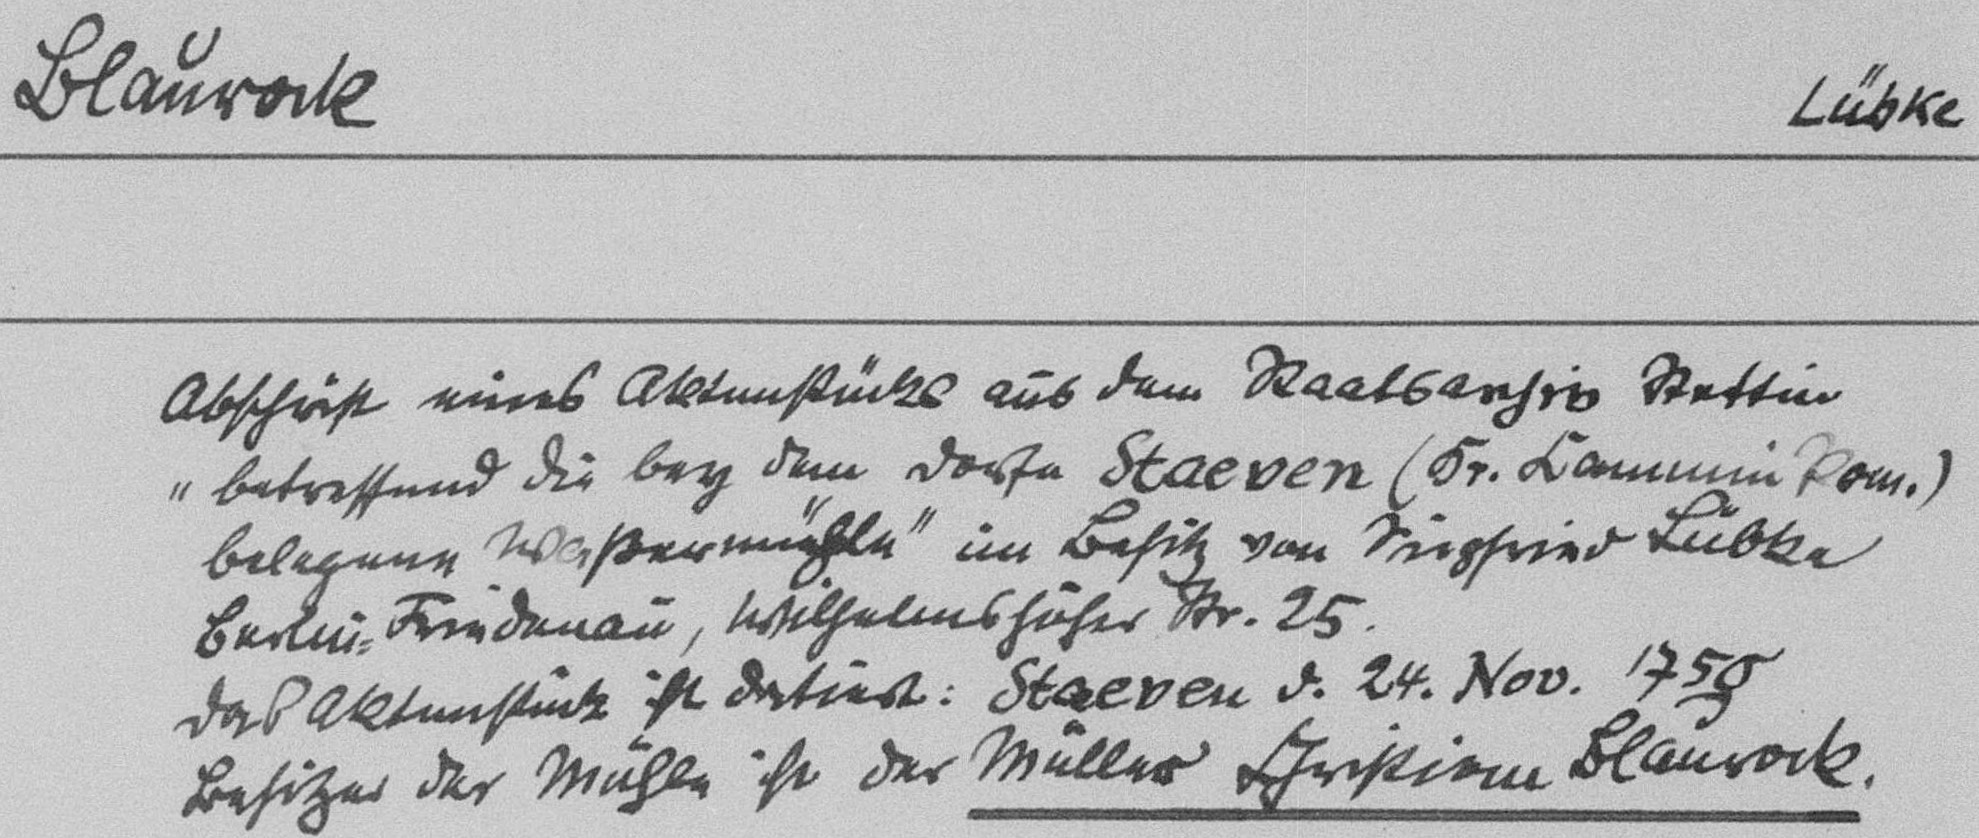 Blaurock
Lübke
Abschrift eines Aktenstücks aus dem Staatsarchiv Stettin
"betreffend die bey dem Dorfe Staeven (Kr. Cammin Pom.)
belegene Waßermühle" im Besitz von Siegfried Lübke
Berlin-Friedenau, Wilhelmshöher Str. 25.
Das Aktenstück ist datiert: Staeven d. 24. Nov.
Besitzer der Mühle ist der Müller Christian Blaurock.